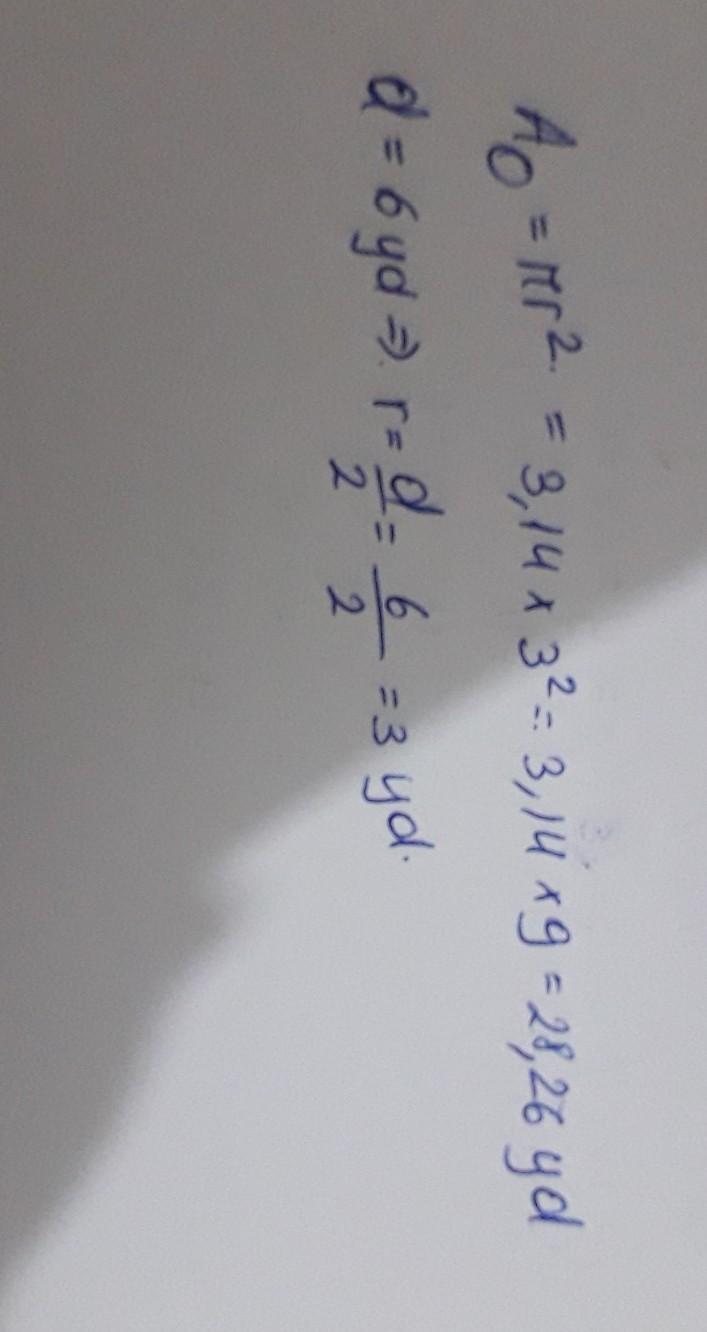 A○ = πr² = 3,14 x 3² = 3,14 x 9 = 28,26 yd
d = 6 yd ⇒ r = d/2 = 6/2 = 3 yd.